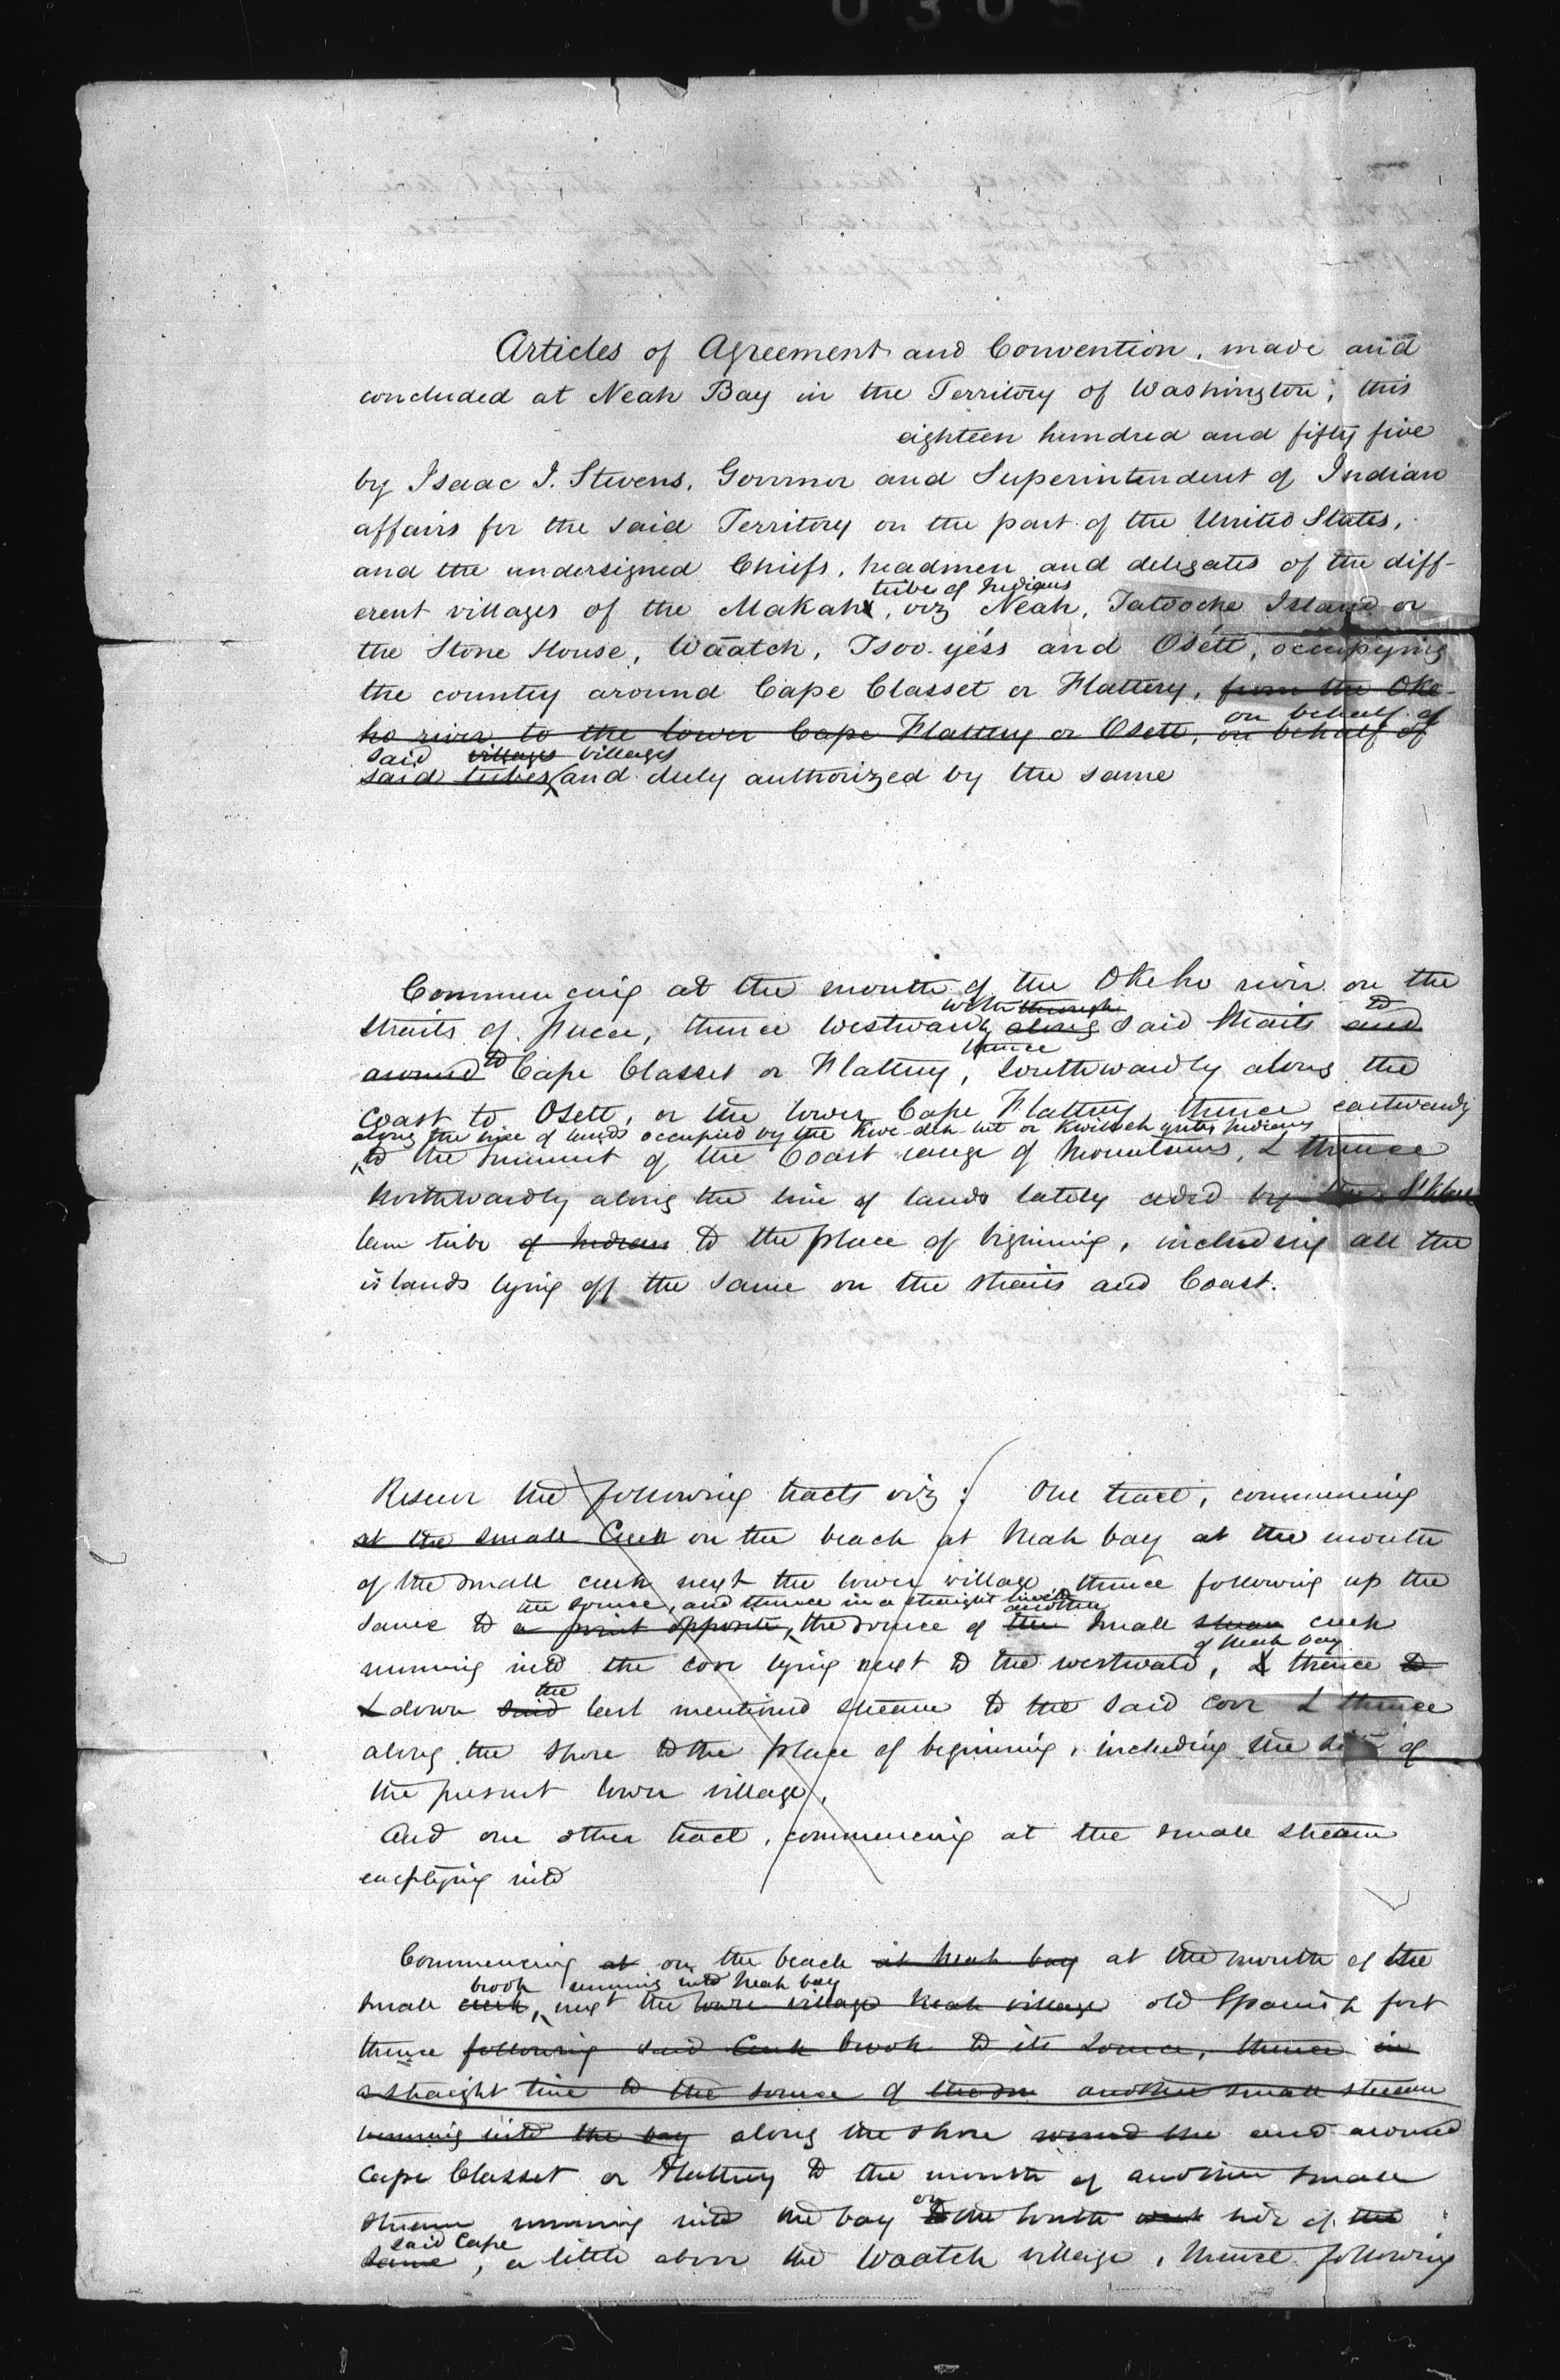 0305
Articles of Agreement and Convention, made and
concluded at Neah Bay in the Territory of Washington, this
eighteen hundred and fifty five
by Isaac I. Stevens, Governor and Superintendent of Indian
affairs for the said Territory on the part of the United States,
and the undersigned Chiefs, headmen and delegates of the diff-
tribe of Indians
erent villages of the Makah, viz Neah, Tatooche Island or
the Stone House, Waatch, Tsoo-yéss and Osétt, occupying
the country around Cape Classet or Flattery, from the Oke-
on behalf of
ho river to the lower Cape Flattery or Osett, on behalf of
said villages villages
said tribes and duly authorized by the same
Commencing at the mouth of the Okeho river on the
with through to
straits of Fuca, thence westwardly along said Straits and
to thence
around Cape Classet or Flattery, southwardly along the
coast to Osett, or the lower Cape Flattery, thence eastwardly
along the line of lands occupied by the Kwe-deh-tut or Kwilleh yute Indians
to the summit of the Coast range of Mountains, & thence
Northwardly along the line of lands lately ceded by the S'Klal
lam tribe of Indians to the place of beginning, including all the
islands lying off the same on the straits and Coast.
Reserve the following tracts viz: One tract, commencing
at the small Creek on the beach at Neah bay at the mouth
of the small creek next the lower village thence following up the
the source, and thence in a straight line to another
same to a point opposite, the source of the small stream creek
of Neah bay
running into the cove lying next to the westward, & thence to
the
& down said last mentioned stream to the said cove & thence
along the shore to the place of beginning, including the site of
the present lower village,
And one other tract, commencing at the small stream
emptying into
Commencing at on the beach at Neah bay at the mouth of the
brook running into Neah bay
small creek, next the lower village Neah village old Spanish fort
thence following said Creek brook to its source, thence in
a straight line to the source of the sm another small stream
running into the bay along the shore round the and around
Cape Classet or Flattery to the mouth of another small
on
stream running into the bay to the South west side of the
said Cape
same, a little above the Waatch village, thence following